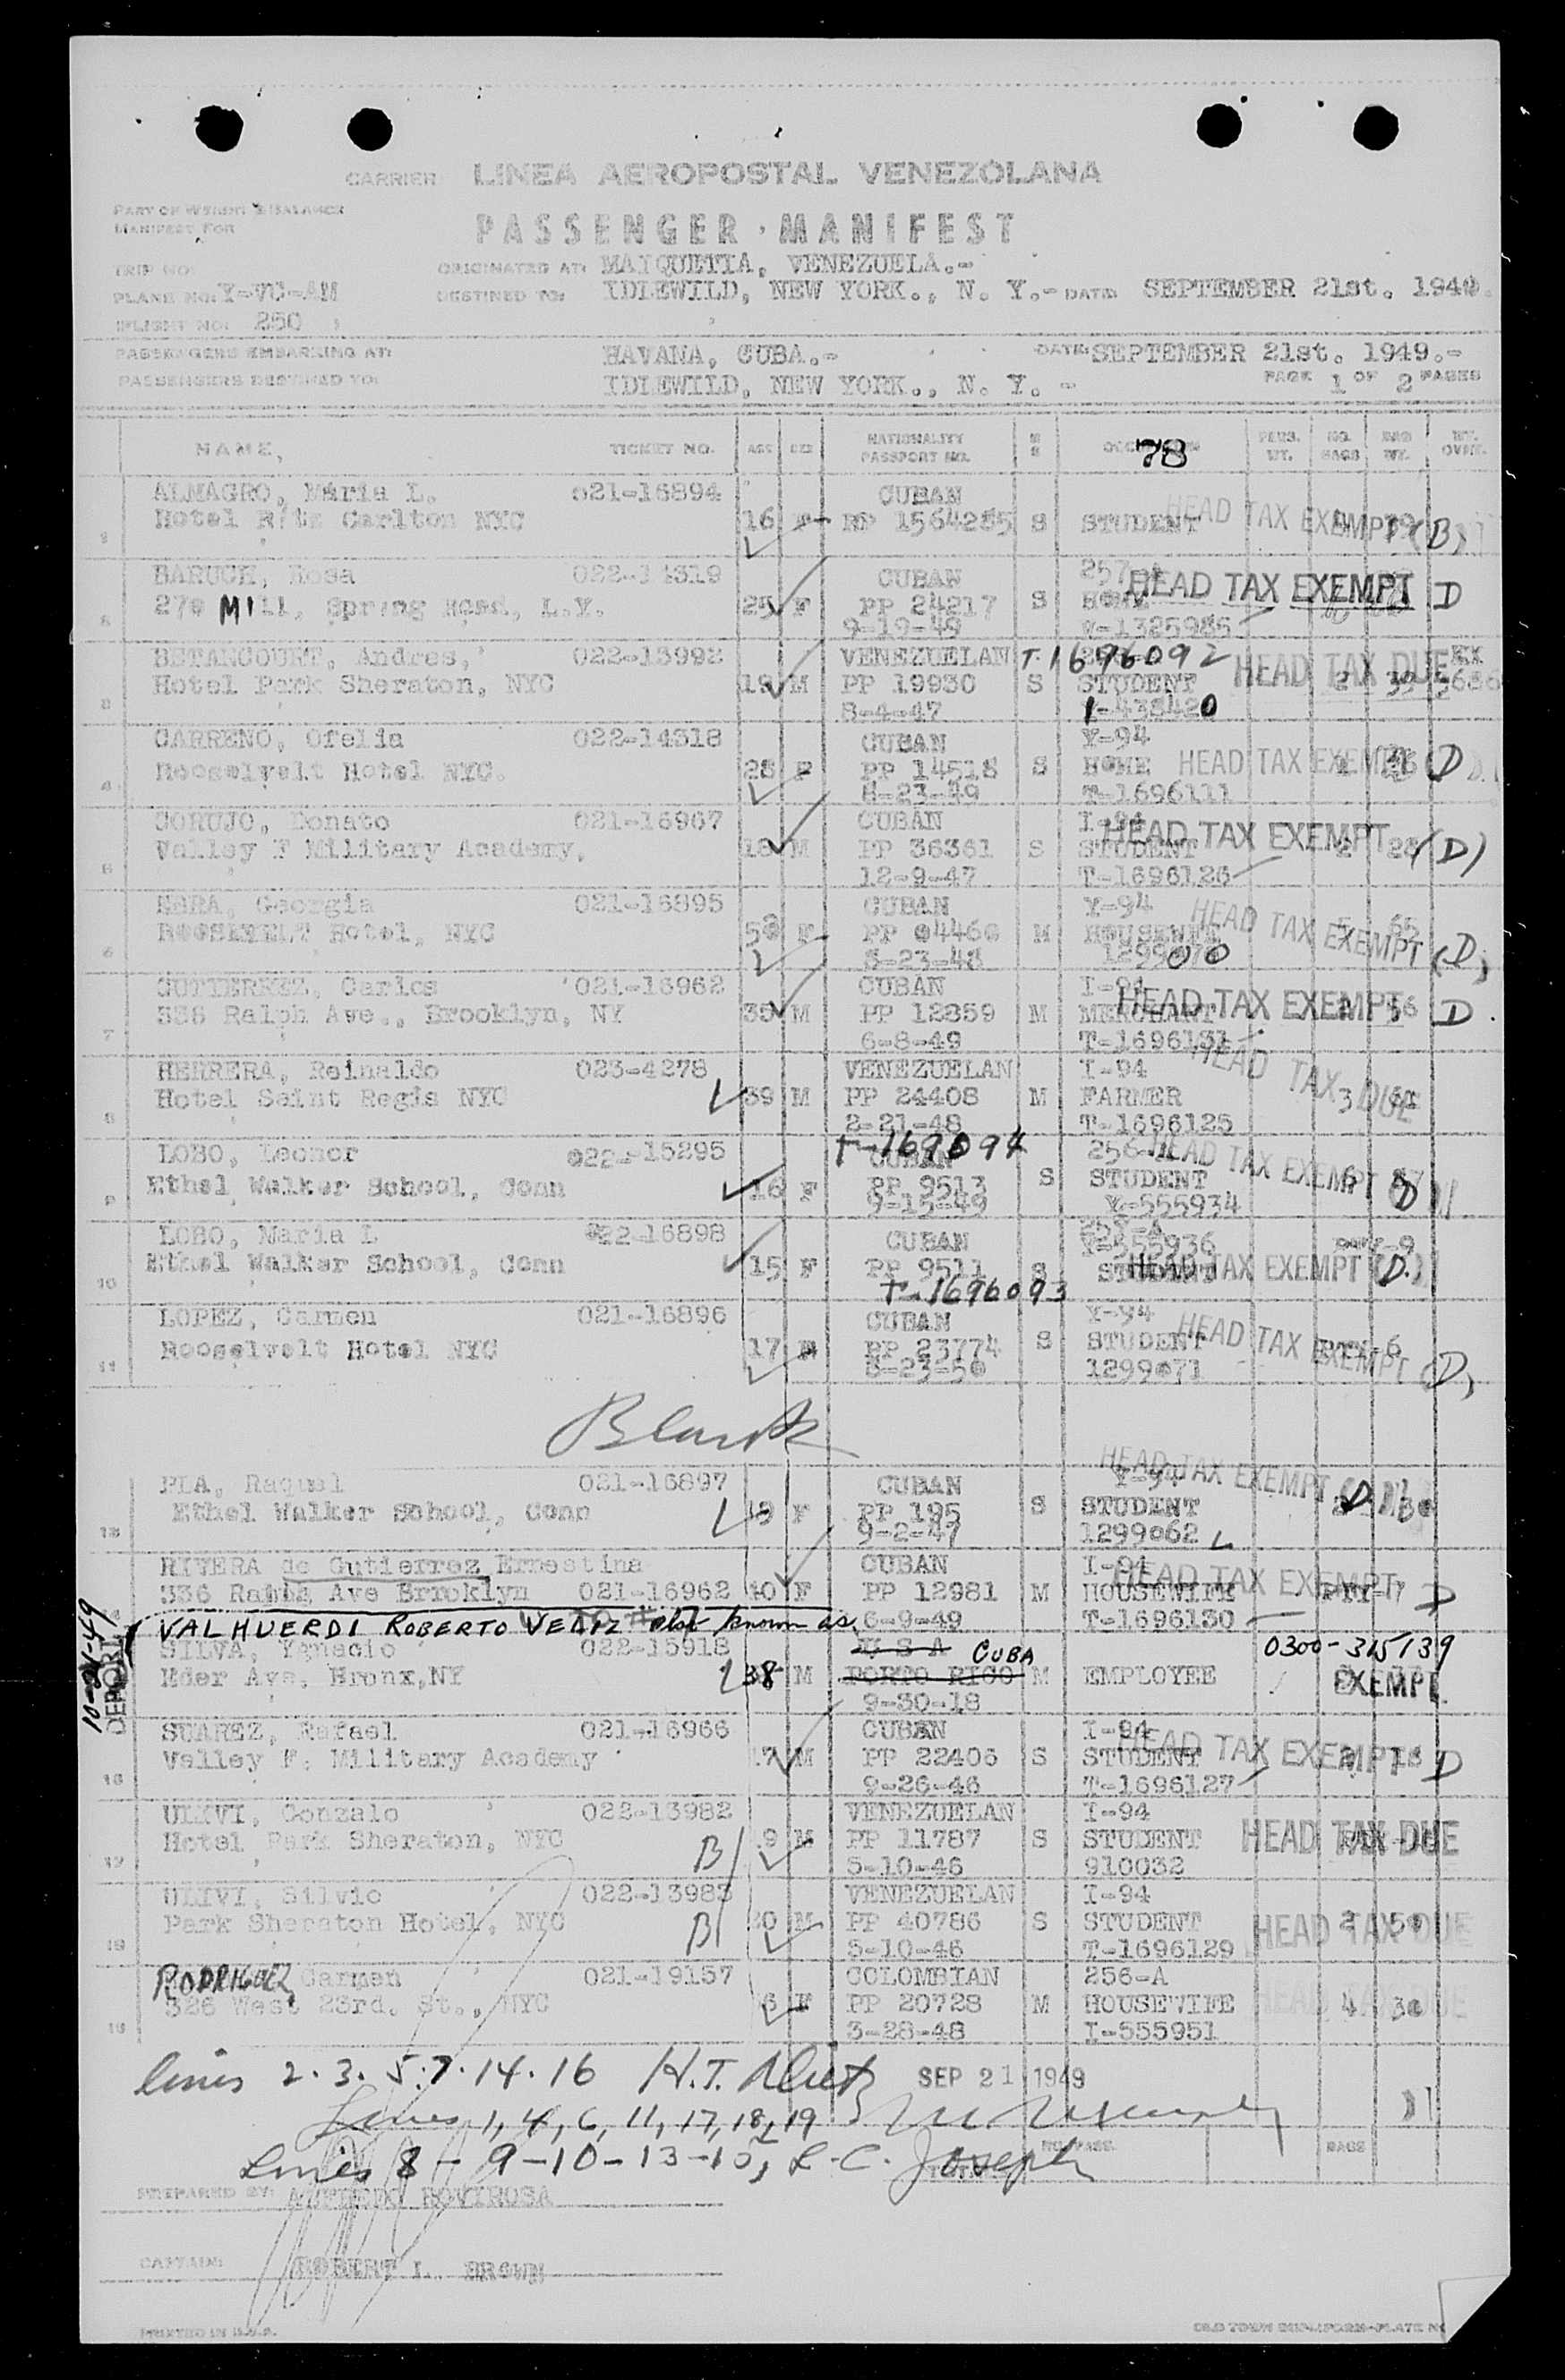 CARRIER LINEA AEROPOSTAL VENEZOLANA
PART OF WEIGHT & BALANCE
MANIFEST FOR
PASSENGER MANIFEST
TRIP NO: ORIGINATED AT: MAIQUETIA, VENEZUELA.-
PLANE NO: Y-VC-AM DESTINED TO: IDLEWILD, NEW YORK., N. Y.- DATE: SEPTEMBER 21st. 1949.
FLIGHT NO: 250
PASSENGERS EMBARKING AT: HAVANA, CUBA.- DATE: SEPTEMBER 21st. 1949.-
PASSENGERS DESTINED TO: IDLEWILD, NEW YORK., N. Y. - PAGE 1 OF 2 PAGES
NAME, TICKET NO. AGE SEX NATIONALITY PASSPORT NO. M S 78 PERS. WT. NO. BAGS BAG WT. WT. OVER.
ALMAGRO, Maria L. 021-16894 CUBAN
Hotel Ritz Carlton NYC 16 F PP 1564285 S STUDENT HEAD TAX EXEMPT (B)
BARUCH, Rosa 022-14319 CUBAN HEAD TAX EXEMPT D
270 Mill, Spring Road, L.Y. 25 F PP 24217 S HOME
9-19-49 V-1325985
BETANCOURT, Andres, 022-13992 VENEZUELAN T-1696092 HEAD TAX DUE
Hotel Park Sheraton, NYC 19 M PP 19930 S STUDENT 2 39
8-4-47 I-438420
CARRENO, Ofelia 022-14318 CUBAN Y-94
Rooselvelt Hotel NYC. 28 F PP 14518 S HOME HEAD TAX EXEMPT D
8-23-49 T-1696111
CORUJO, Donato 021-16967 CUBAN I-94 HEAD TAX EXEMPT
Valley F Military Academy, 18 M PP 36361 S STUDENT 2 28 (D)
12-9-47 T-1696126
Georgia 021-16895 CUBAN Y-94 HEAD TAX EXEMPT
ROOSLVELT Hotel, NYC 50 F PP 04460 M HOUSEWIFE 5 65 (D)
8-23-48
GUTIERREZ, Carlos 021-16962 CUBAN I-94
336 Ralph Ave., Brooklyn, NY 35 M PP 12859 M MERCHANT HEAD TAX EXEMPT 2 56 D
6-8-49 T-1696131
HERRERA, Reinaldo 023-4278 VENEZUELAN I-94 HEAD TAX DUE
Hotel Saint Regis NYC 39 M PP 24408 M FARMER 3
2-21-48 T-1696125
LOBO, Leonor 022-15295 T-169094 CUBAN HEAD TAX EXEMPT
Ethel Walker School, Conn 16 F PP 9513 S STUDENT 6 D
9-15-49 Y-555934
LOBO, Maria L 022-16898 CUBAN Y-555936
Ethel Walker School, Conn 15 F PP 9511 S STUDENT HEAD TAX EXEMPT (D.)
T-1696093
LOPEZ, Carmen 021-16896 CUBAN Y-94
Rooselvelt Hotel NYC 17 F PP 23774 S STUDENT HEAD TAX EXEMPT (D)
8-23-50 1299071
Blank
PLA, Raquel 021-16897 CUBAN Y-94 HEAD TAX EXEMPT D
Ethel Walker School, Conn 19 F PP 195 S STUDENT
9-2-47 1299062
RIVERA de Gutierrez Ernestina CUBAN I-94
336 Ralph Ave Brroklyn 021-16962 40 F PP 12981 M HOUSEWIFE HEAD TAX EXEMPT D
6-9-49 T-1696130
VALHUERDI ROBERTO VELIZ also known as.
SILVA, Ygnacio 022-15918 U S A CUBA 0300-315139
10-24-49 DEPORT
Eder Ave, Bronx, NY 38 M PORTO RICO M EMPLOYEE EXEMPT
9-30-18
SUAREZ, Rafael 021-16966 CUBAN I-94
Valley F. Military Academy 17 M PP 22406 S STUDENT HEAD TAX EXEMPT D
9-26-46 T-1696127
ULIVI, Gonzalo 022-13982 VENEZUELAN I-94
Hotel Park Sheraton, NYC B 19 M PP 11787 S STUDENT HEAD TAX DUE
5-10-46 910032
ULIVI, Silvio 022-13983 VENEZUELAN I-94
Park Sheraton Hotel, NYC B 20 M PP 40786 S STUDENT HEAD TAX DUE 2 50
5-10-46 T-1696129
RODRIGUEZ, Carmen 021-19157 COLOMBIAN 256-A
326 West 23rd. St., NYC F PP 20728 M HOUSEWIFE HEAD TAX DUE 4 30
3-28-48 I-555951
lines 2.3.5.7.14.16 H.T. SEP 21 1949
Lines 1, 4, 6, 11, 17, 18, 19
Lines 8-9-10-13-15, L.C. Joseph
PREPARED BY: ALFREDO ROVIROSA
CAPTAIN: ROBERT L. BROWN
PRINTED IN U.S.A.